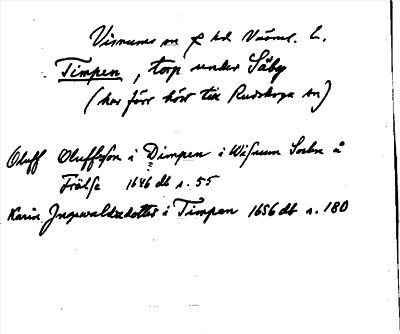 Visnums sn f hd Värml. L.
Timpen, torp under Säby
(har förr hört till Rudskoga sn)
Oluff Oluffsson i Dimpen i Wisnum Sochn å
Frälse 1646 db s. 55
Karin Ingewaldzdotter i Timpen 1656 db s. 180